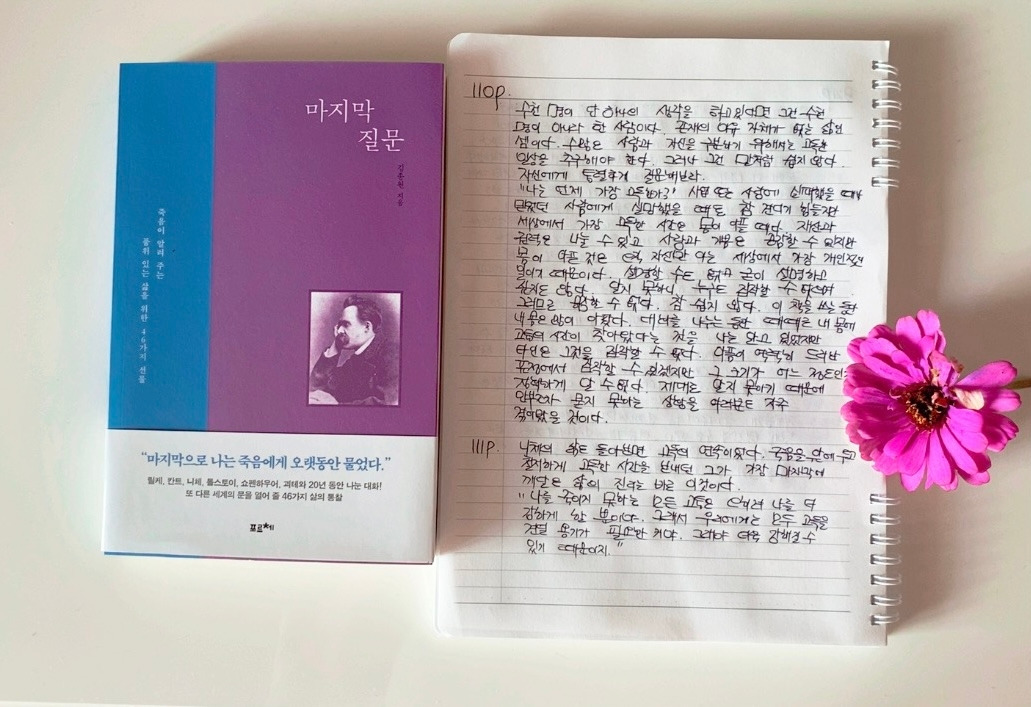 마지막
질문
김종원 지음
죽음이 알려 주는
품위 있는 삶을 위한 46가지 선물
“마지막으로 나는 죽음에게 오랫동안 물었다.”
릴케, 칸트, 니체, 톨스토이, 쇼펜하우어, 괴테와 20년 동안 나눈 대화!
또 다른 세계의 문을 열어 줄 46가지 삶의 통찰
포르★체
110p.
수천 명이 단 하나의 생각을 하고 있다면 그건 수천
명이 아니라 한 사람이다. 존재의 이유 자체가 없는 삶인
셈이다. 수많은 사람과 자신을 구분하기 위해서는 고독한
일상을 추구해야 한다. 그러나 그건 말처럼 쉽지 않다.
자신에게 통렬하게 질문해보라.
"나는 언제 가장 고독한가?" 사업 또는 사랑에 실패했을 때나
믿었던 사람에게 실망했을 때도 참 견디기 힘들지만
세상에서 가장 고독한 시간은 몸이 아플 때다. 재산과
권력은 나눌 수 있고 사랑과 개념은 공감할 수 있지만
몸이 아픈 것은 오직 자신만 아는 세상에서 가장 개인적인
일이기 때문이다. 설명할 수도 없고 굳이 설명하고
싶지도 않다. 알지 못하니 누구도 짐작할 수 없으며
그러므로 공감할 수 없다. 참 쉽지 않다. 이 책을 쓰는 동안
내 몸은 많이 아팠다. 대화를 나누는 동안 때때로 내 몸에
고통의 시간이 찾아왔다는 것을 나는 알고 있었지만
타인은 그것을 짐작할 수 없다. 아픔이 역력히 드러난
표정에서 짐작할 수 있겠지만 그 크기가 어느 정도인지
정확하게 알 수 없다. 제대로 알지 못하기 때문에
안부조차 묻지 못하는 상황을 여러분도 자주
겪어왔을 것이다.
111p.
니체의 삶은 돌아보면 고독의 연속이었다. 죽음을 앞에 두고
철저하게 고독한 시간을 보내던 그가 가장 마지막에
깨달은 삶의 진리는 바로 이것이다.
"나를 죽이지 못하는 모든 고통은 오히려 나를 더
강하게 할 뿐이야. 그래서 우리에게는 모두 고독을
견딜 용기가 필요한 거야. 그래야 더욱 강해질 수
있기 때문이지."